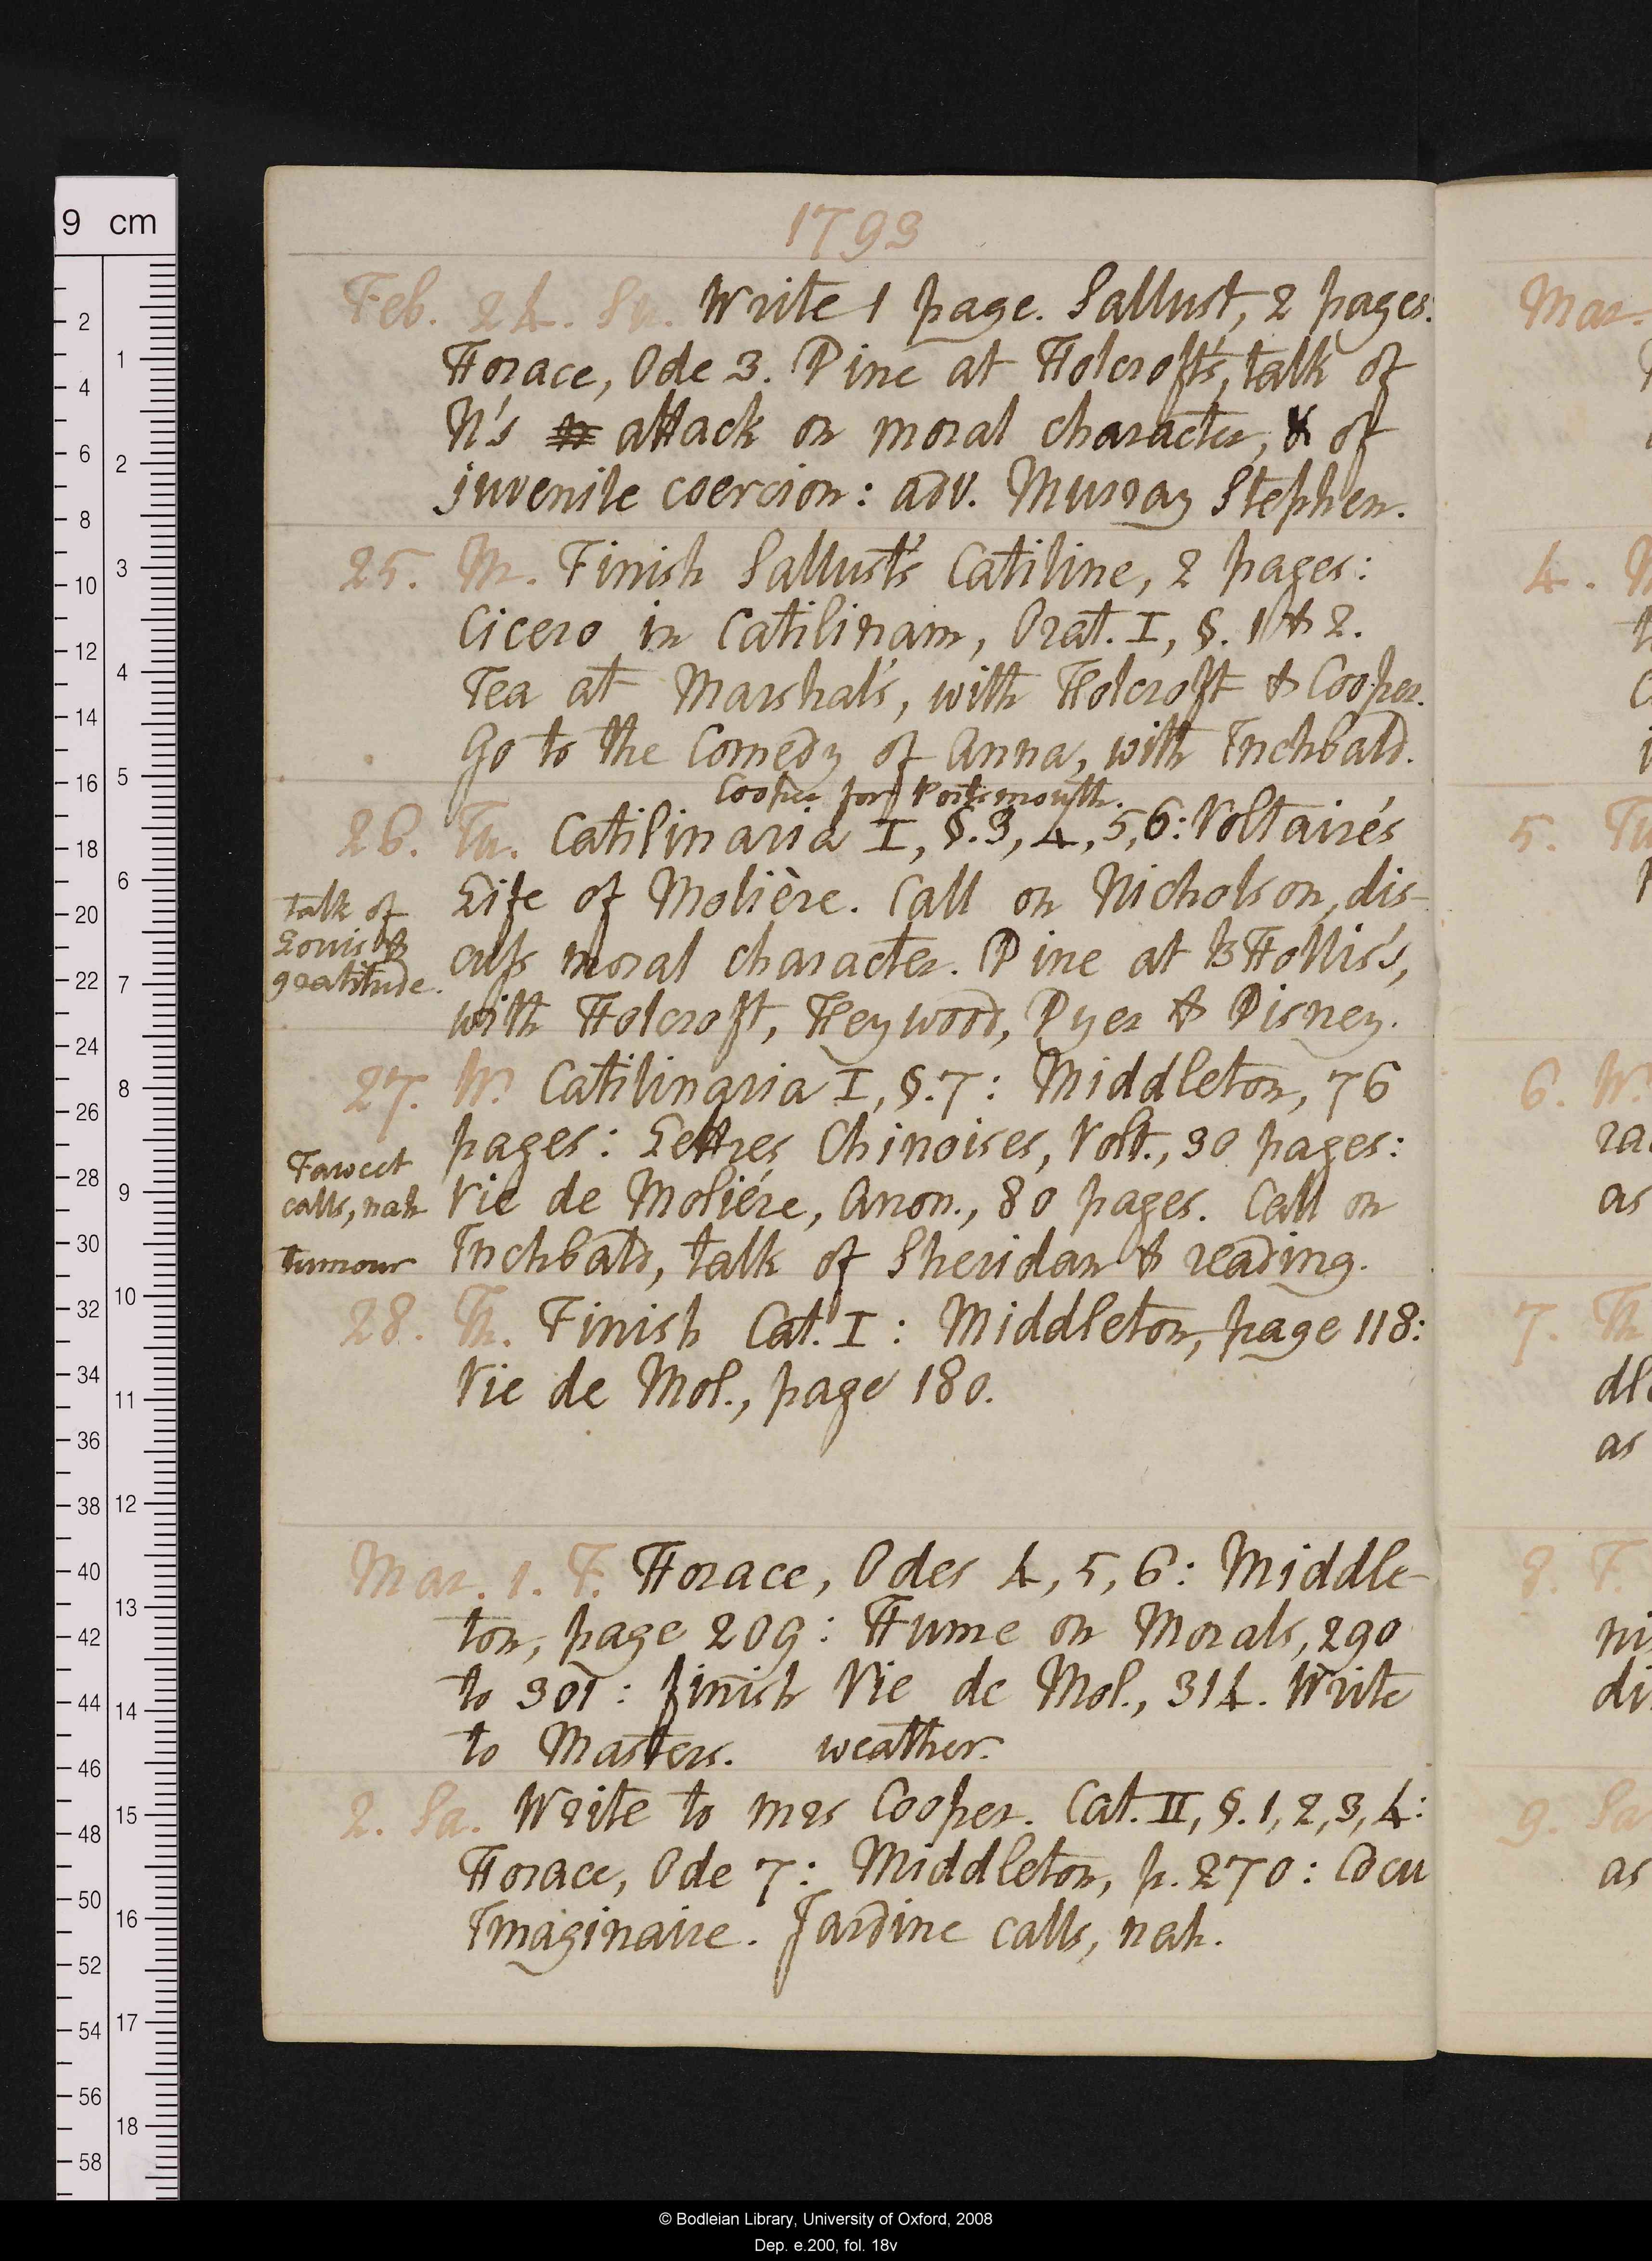 1793
Feb. 24. Su. Write 1 page. Sallust, 2 pages:
Horace, Ode 3. Dine at Holcroft's, talk of
N's attack on moral character, & of
juvenile coercion: adv. Murray Stephen.
25. M. Finish Sallust's Catiline, 2 pages:
Cicero in Catilinam, Orat. I, §. 1 & 2.
Tea at Marshal's, with Holcroft & Cooper.
Go to the Comedy of Anna, with Inchbald.
Cooper for Portsmouth.
26. Tu. Catilinaria I, §. 3, 4, 5, 6: Voltaire's
Life of Molière. Call on Nicholson, dis-
cuss moral character. Dine at B Hollis's,
with Holcroft, Heywood, Dyer & Disney.
talk of
Louis &
gratitude.
27. W. Catilinaria I, §. 7: Middleton, 76
pages: Lettres Chinoises, Volt., 30 pages:
Vie de Moliére, Anon., 80 pages. Call on
Inchbald, talk of Sheridan & reading.
Fawcet
calls, nah
tumour
28. Th. Finish Cat. I: Middleton, page 118:
Vie de Mol., page 180.
Mar. 1. F. Horace, Odes 4, 5, 6: Middle-
ton, page 209: Hume on Morals, 290
to 301: finish Vie de Mol., 314. Write
to Masters. weather.
2. Sa. Write to mrs Cooper. Cat. II, §. 1, 2, 3, 4:
Horace, Ode 7: Middleton, p. 270: Cocu
Imaginaire. Jardine calls, nah.
Mar.
4. M
5. Tu
6. W.
ra
as
7. Th
dl
as
8. F
ni
di
9. Sa
as
9 cm
© Bodleian Library, University of Oxford, 2008
Dep. e.200, fol. 18v